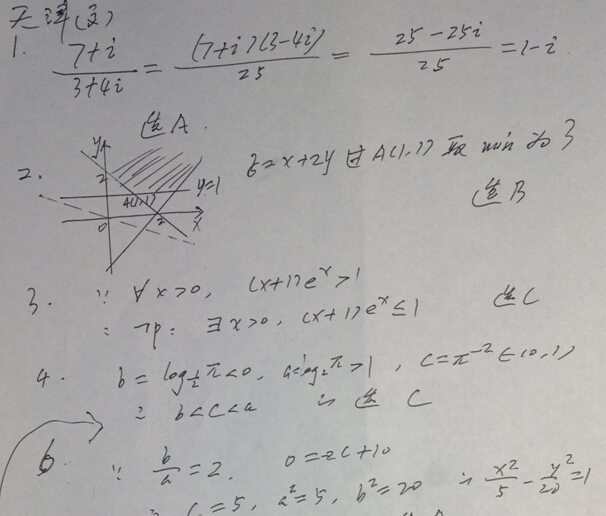 天津(文)
1. \frac{7+i}{3+4i} = \frac{(7+i)(3-4i)}{25} = \frac{25-25i}{25} = 1-i
选A.
2. y 2 A(1,1) y=1 0 2 x
z=x+2y 过A(1,1) 取 min 为3
选B
3. ∵ ∀x>0, (x+1)e^x>1
∴ ¬p: ∃x>0, (x+1)e^x≤1 选C
4. b=log_{\frac{1}{2}}π<0, a=log_2π>1, c=π^{-2}∈(0,1)
∴ b<c<a ∴ 选 C
6. ∵ \frac{b}{a}=2. 0=-2c+10
∴ c=5, a^2=5, b^2=20 ∴ \frac{x^2}{5}-\frac{y^2}{20}=1